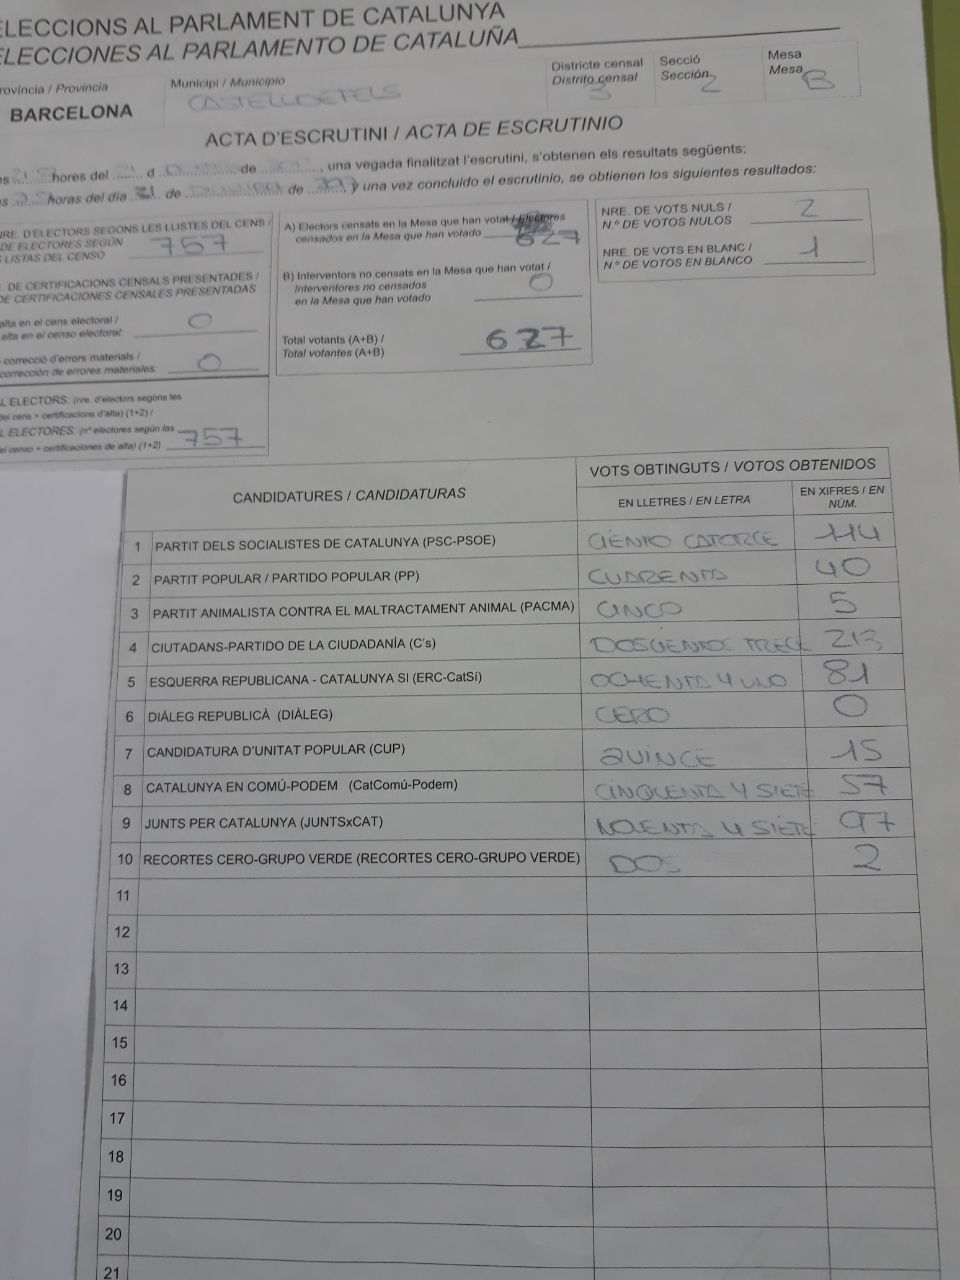 ELECCIONS AL PARLAMENT DE CATALUNYA
ELECCIONES AL PARLAMENTO DE CATALUÑA
rovíncia / Provincia
BARCELONA
Municipi / Municipio
CASTELLDEFELS
Districte censal
Distrito censal
3
Secció
Sección
2
Mesa
Mesa
B
ACTA D'ESCRUTINI / ACTA DE ESCRUTINIO
hores del d de una vegada finalitzat l'escrutini, s'obtenen els resultats següents:
horas del día 21 de de y una vez concluido el escrutinio, se obtienen los siguientes resultados:
NRE. D'ELECTORS SEGONS LES LLISTES DEL CENS /
DE ELECTORES SEGÚN
LISTAS DEL CENSO 757
DE CERTIFICACIONS CENSALS PRESENTADES /
DE CERTIFICACIONES CENSALES PRESENTADAS
alta en el cens electoral /
alta en el censo electoral: 0
correcció d'errors materials /
corrección de errores materiales: 0
L ELECTORS: (nre. d'electors segons les
del cens + certificacions d'alta) (1+2) /
L ELECTORES: (nº electores según las
el censo + certificaciones de alta) (1+2) 757
A) Electors censats en la Mesa que han votat / Electores
censados en la Mesa que han votado 627
B) Interventors no censats en la Mesa que han votat /
Interventores no censados
en la Mesa que han votado 0
Total votants (A+B) /
Total votantes (A+B) 627
NRE. DE VOTS NULS /
N.º DE VOTOS NULOS 2
NRE. DE VOTS EN BLANC /
N.º DE VOTOS EN BLANCO 1
CANDIDATURES / CANDIDATURAS
VOTS OBTINGUTS / VOTOS OBTENIDOS
EN LLETRES / EN LETRA
EN XIFRES / EN
NÚM.
1 PARTIT DELS SOCIALISTES DE CATALUNYA (PSC-PSOE) CIENTO CATORCE 114
2 PARTIT POPULAR / PARTIDO POPULAR (PP) CUARENTA 40
3 PARTIT ANIMALISTA CONTRA EL MALTRACTAMENT ANIMAL (PACMA) CINCO 5
4 CIUTADANS-PARTIDO DE LA CIUDADANÍA (C's) DOSCIENTOS TRECE 213
5 ESQUERRA REPUBLICANA - CATALUNYA SI (ERC-CatSí) OCHENTA Y UNO 81
6 DIÀLEG REPUBLICÀ (DIÀLEG) CERO 0
7 CANDIDATURA D'UNITAT POPULAR (CUP) QUINCE 15
8 CATALUNYA EN COMÚ-PODEM (CatComú-Podem) CINQUENTA Y SIETE 57
9 JUNTS PER CATALUNYA (JUNTSxCAT) NOVENTA Y SIETE 97
10 RECORTES CERO-GRUPO VERDE (RECORTES CERO-GRUPO VERDE) DOS 2
11
12
13
14
15
16
17
18
19
20
21